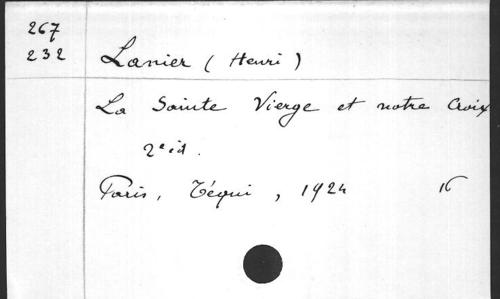 267
232
Lanier (Henri)
La Sainte Vierge et notre Croix
2e éd.
Paris, Téqui, 1924 16